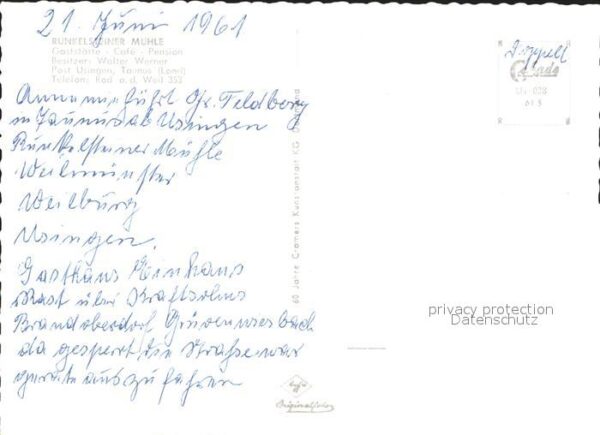 21. Juni 1961
RUNKELSTEINER MÜHLE
Gaststätte - Café - Pension
Besitzer: Walter Werner
Post Usingen, Taunus (Land)
Telefon: Rod a. d. Weil 352
Gr. Feldberg
m Taunus ab Usingen
Runkelsteiner Mühle
Weilmünster
Weilburg
Usingen.
Gasthaus Einhaus
Rast über Kraftsolms
Brandoberdorf Grävenwiesbach
da gesperrt die Straße war
gerate auszufahren
60 Jahre Cramers Kunstanstalt KG
Doppelt
Cekade
028
61 5
privacy protection
Datenschutz
Agfa
Originalfoto